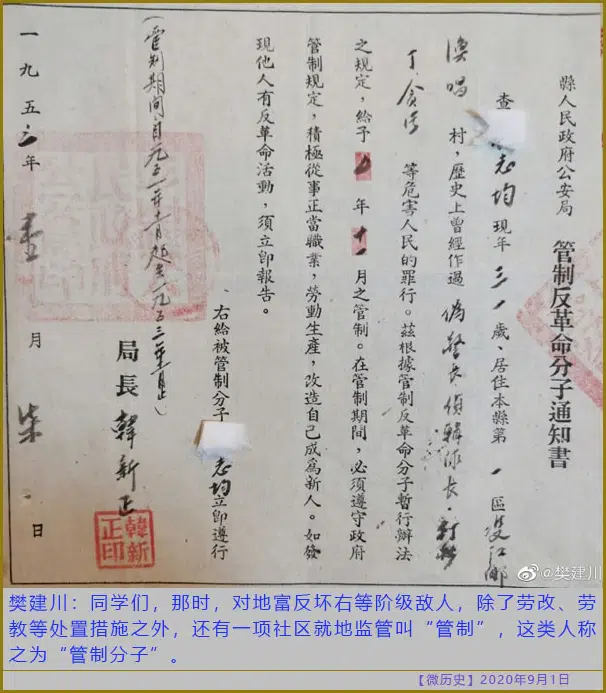 縣人民政府公安局
管制反革命分子通知書
查 志均 現年 三一 歲、居住本縣第 一 區 江鄉
村，歷史上曾經作過 偽警長偵緝隊長、
貪污 等危害人民的罪行。茲根據管制反革命分子暫行辦法
之規定，給予 年 十一 月之管制。在管制期間，必須遵守政府
管制規定，積極從事正當職業，勞動生產，改造自己成爲新人。如發
現他人有反革命活動，須立卽報告。
右給被管制分子 志均 立卽遵行
局長 韓新正
韓新正印
（管制期間自一九五二年 月起至一九五三年 月止）
一九五三年 壹 月 柒 日
@樊建川
樊建川：同学们，那时，对地富反坏右等阶级敌人，除了劳改、劳
教等处置措施之外，还有一项社区就地监管叫“管制”，这类人称
之为“管制分子”。
【微历史】2020年9月1日